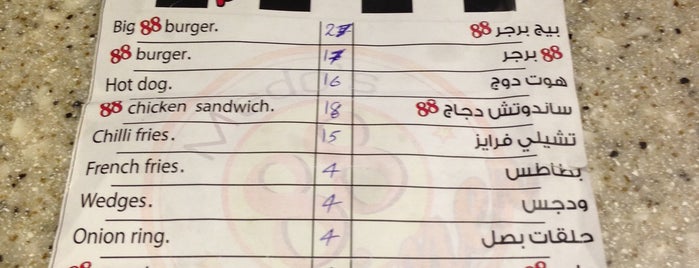 Big 88 burger. 27 بيج برجر 88
88 burger. 17 88 برجر
Hot dog. 16 هوت دوج
88 chicken sandwich. 18 ساندوتش دجاج 88
Chilli fries. 15 تشيلي فرايز
French fries. 4 بطاطس
Wedges. 4 ودجس
Onion ring. 4 حلقات بصل
88